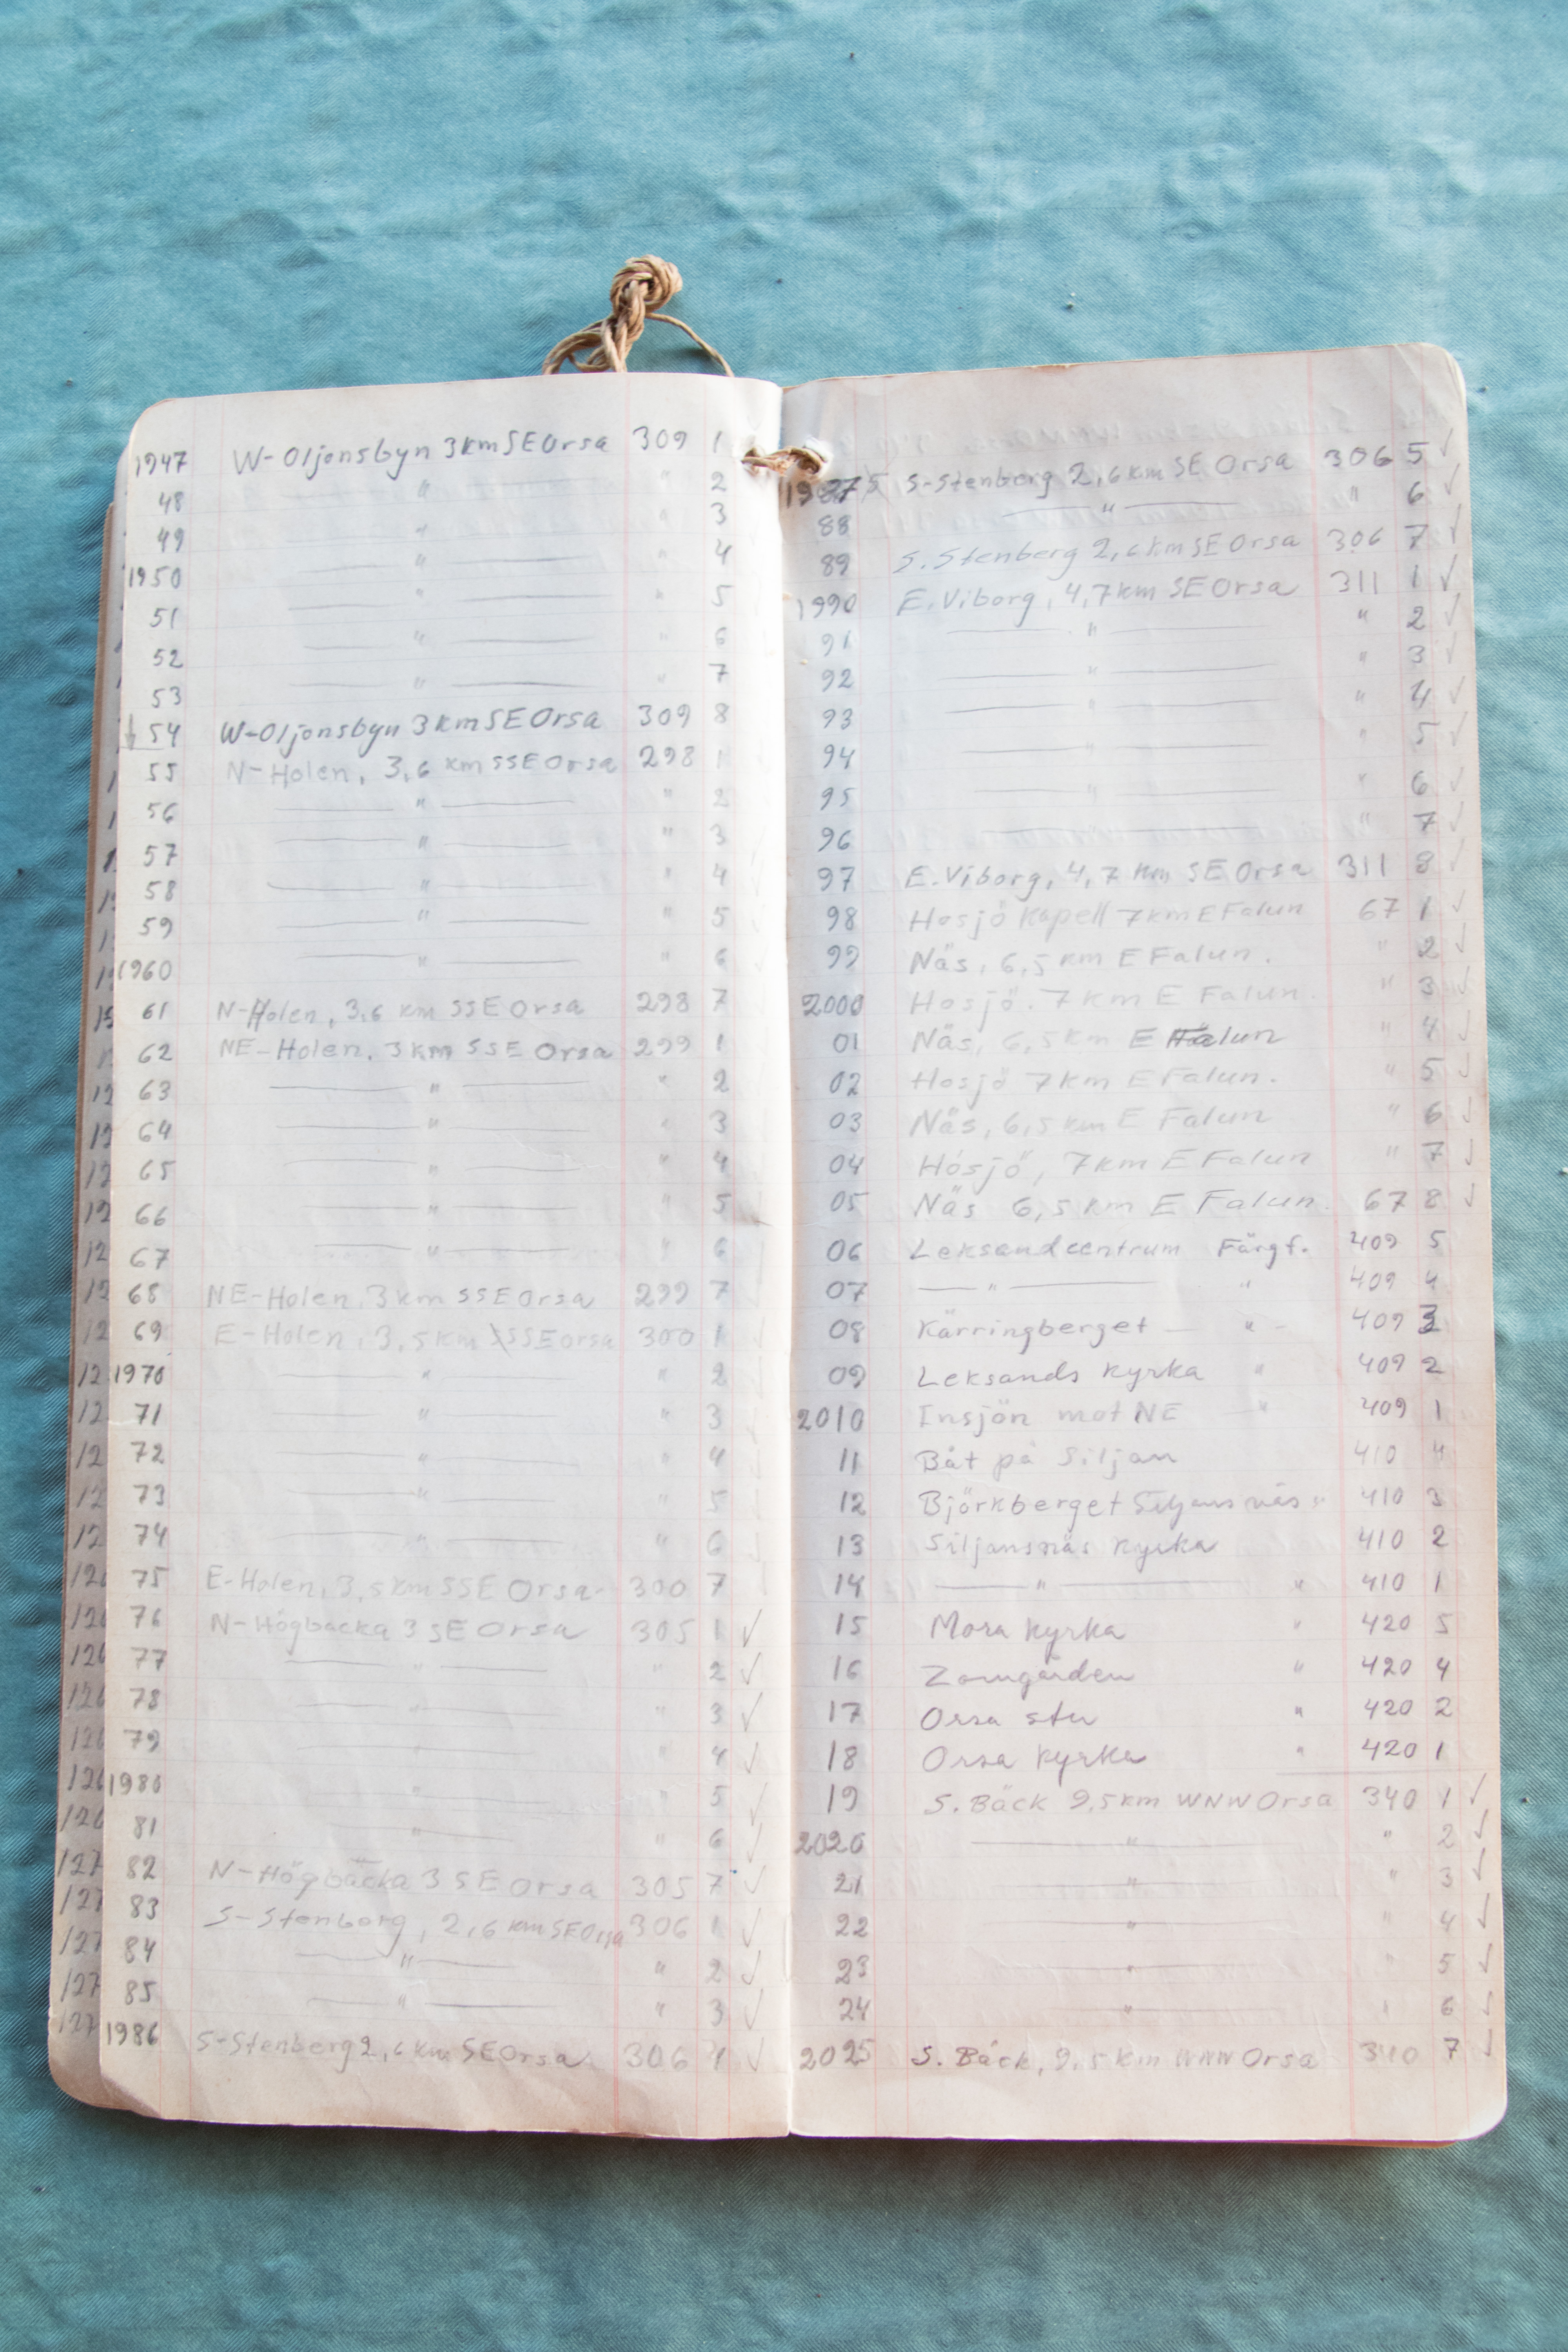 1947 W-Oljonsbyn 3km SE Orsa 309 1
48 " " 2
49 " " 3
1950 " " 4
51 " " 5
52 " " 6
53 " " 7
54 W-Oljonsbyn 3km SE Orsa 309 8
55 N-Holen, 3,6 km SSE Orsa 298 1
56 " " 2
57 " " 3
58 " " 4
59 " " 5
1960 " " 6
61 N-Holen, 3,6 km SSE Orsa 298 7
62 NE-Holen, 3 km SSE Orsa 299 1
63 " " 2
64 " " 3
65 " " 4
66 " " 5
67 " " 6
68 NE-Holen, 3 km SSE Orsa 299 7
69 E-Holen, 3,5 km SSE Orsa 300 1
1970 " " 2
71 " " 3
72 " " 4
73 " " 5
74 " " 6
75 E-Holen, 3,5 km SSE Orsa 300 7
76 N-Högbacka 3 SE Orsa 305 1 ✓
77 " " 2 ✓
78 " " 3 ✓
79 " 4 ✓
1980 " " 5 ✓
81 " " 6 ✓
82 N-Högbacka 3 SE Orsa 305 7 ✓
83 S-Stenberg, 2,6 km SE Orsa 306 1 ✓
84 " " 2 ✓
85 " " 3 ✓
1986 S-Stenberg 2,6 km SE Orsa 306 4 ✓
1987 S-Stenberg 2,6 km SE Orsa 306 5 ✓
88 " " 6 ✓
89 S. Stenberg 2,6 km SE Orsa 306 7 ✓
1990 E. Viborg, 4,7 km SE Orsa 311 1 ✓
91 " " 2 ✓
92 " " 3 ✓
93 " " 4 ✓
94 " " 5 ✓
95 " " 6 ✓
96 " " 7 ✓
97 E. Viborg, 4,7 km SE Orsa 311 8 ✓
98 Hosjö Kapell 7 km E Falun 67 1 ✓
99 Näs, 6,5 km E Falun. " 2 ✓
2000 Hosjö. 7 km E Falun. " 3 ✓
01 Näs, 6,5 km E Falun " 4 ✓
02 Hosjö 7 km E Falun. " 5 ✓
03 Näs, 6,5 km E Falun " 6 ✓
04 Hosjö, 7 km E Falun " 7 ✓
05 Näs 6,5 km E Falun. 67 8 ✓
06 Leksand centrum Färgf. 409 5
07 " " 409 4
08 Kärringberget " 409 3
09 Leksands kyrka " 409 2
2010 Insjön mot NE " 409 1
11 Båt på Siljan 410 4
12 Björkberget Siljansnäs " 410 3
13 Siljansnäs kyrka 410 2
14 " " 410 1
15 Mora kyrka " 420 5
16 Zorngården " 420 4
17 Orsa stn " 420 2
18 Orsa kyrka " 420 1
19 S. Bäck 9,5 km WNW Orsa 340 1 ✓
2020 " " 2 ✓
21 " " 3 ✓
22 " " 4 ✓
23 " " 5 ✓
24 " " 6 ✓
2025 S. Bäck, 9,5 km WNW Orsa 340 7 ✓